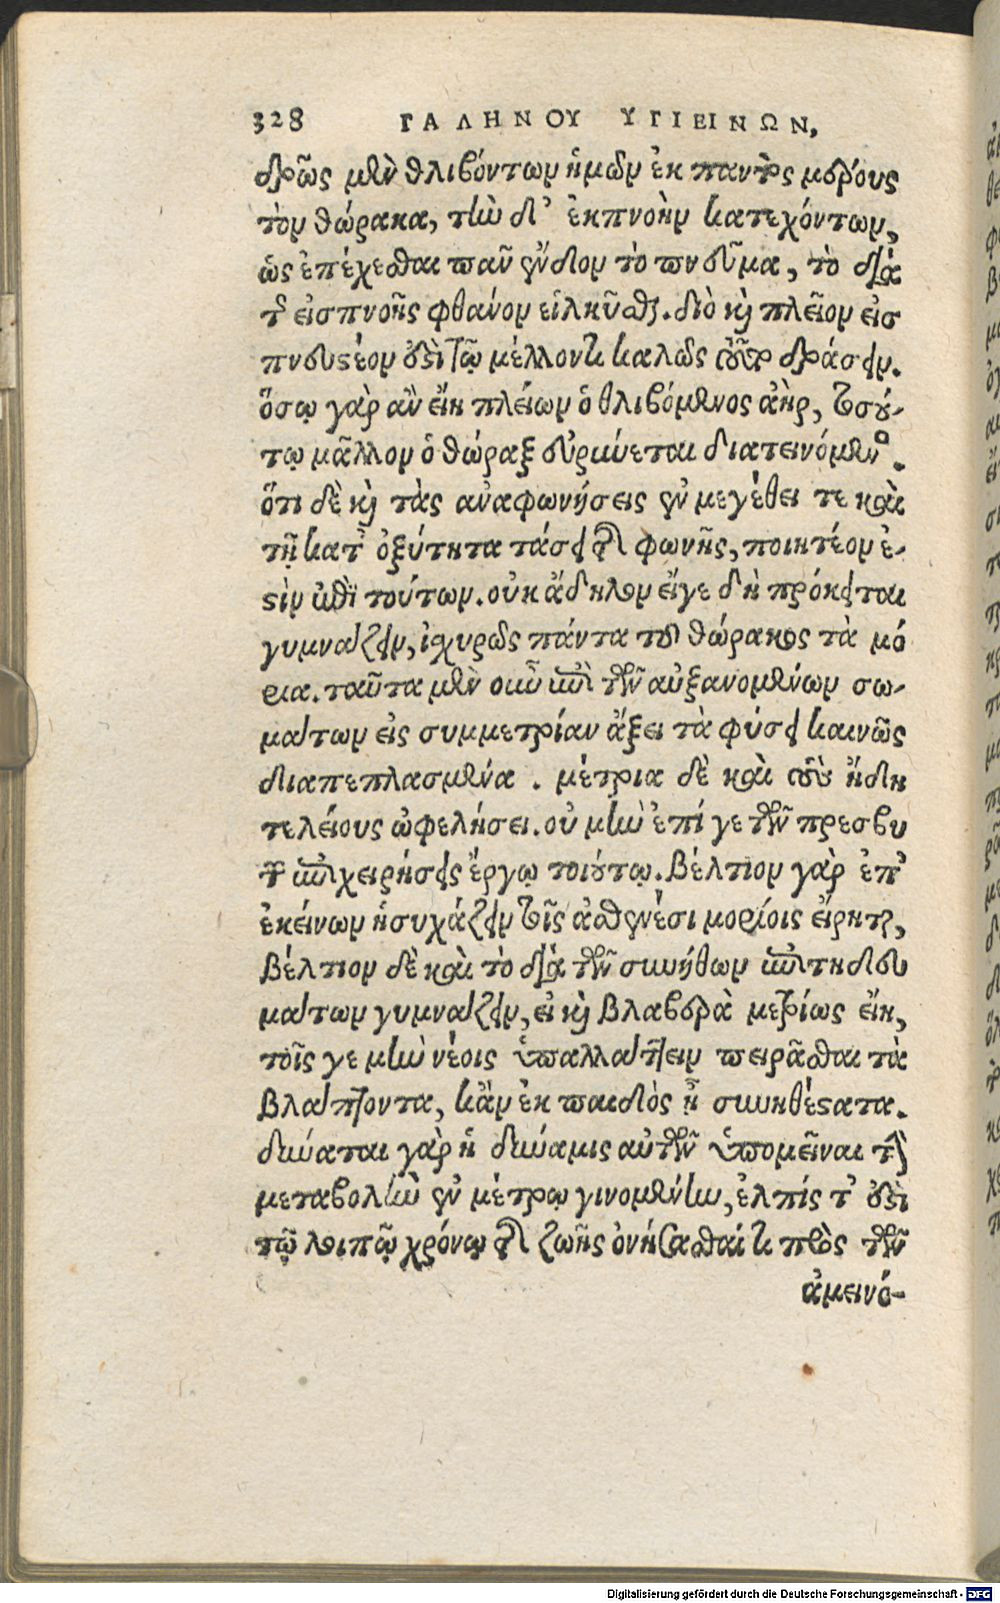 328 ΓΑΛΗΝΟΥ ΥΓΙΕΙΝΩΝ,
δρῶς μὲν θλιβόντων ἡμῶν ἐκ παντὸς μέρους
τὸν θώρακα, τὴν δ' ἐκπνοὴν κατεχόντων,
ὡς ἐπέχεσθαι πᾶν ἔνδον τὸ πνεῦμα, τὸ διὰ
τ εἰσπνοῆς φθάνον εἱλκῦσθαι. διὸ καὶ πλεῖον εἰσ
πνευστέον ἐστὶ τῷ μέλλοντι καλῶς αὐτὸ δράσειν.
ὅσῳ γὰρ ἂν εἴη πλείων ὁ θλιβόμενος ἀὴρ, τοσού-
τῳ μᾶλλον ὁ θώραξ εὐρύνεται διατεινόμενος.
ὅτι δὲ καὶ τὰς ἀναφωνήσεις ἐν μεγέθει τε καὶ
τῇ κατ' ὀξύτητα τάσει τῆς φωνῆς, ποιητέον ἐ-
στὶν ἐπὶ τούτων. οὐκ ἄδηλον εἴγε δὴ πρόκειται
γυμνάζειν, ἰχυρῶς πάντα τοῦ θώρακος τὰ μό
ρια. ταῦτα μὲν οὖν ἐπὶ τῶν αὐξανομένων σω-
μάτων εἰς συμμετρίαν ἄξει τὰ φύσει κακῶς
διαπεπλασμένα. μέτρια δὲ καὶ τοὺς ἤδη
τελείους ὠφελήσει. οὐ μὴν ἐπί γε τῶν πρεσβυ
τ ἐπιχειρήσεις ἔργῳ τοιούτῳ. βέλτιον γὰρ ἐπ'
ἐκείνων ἡσυχάζειν τοῖς ἀσθενέσι μορίοις εἴρηται,
βέλτιον δὲ καὶ τὸ διὰ τῶν συνήθων ἐπιτηδευ
μάτων γυμνάζειν, εἰ καὶ βλαβερὰ μετρίως εἴη,
τοῖς γε μὴν νέοις ὑπαλλάττειν πειρᾶσθαι τὰ
βλάπτοντα, κἂν ἐκ παιδὸς ᾖ συνηθέστατα.
δύναται γὰρ ἡ δύναμις αὐτῶν ὑπομεῖναι τὴν
μεταβολὴν ἐν μέτρῳ γινομένην, ἐλπίς τ' ἐστὶ
τῷ λοιπῷ χρόνῳ τῆς ζωῆς ὀνήσασθαί τι πρὸς τῶν
ἀμεινό-
Digitalisierung gefördert durch die Deutsche Forschungsgemeinschaft - DFG